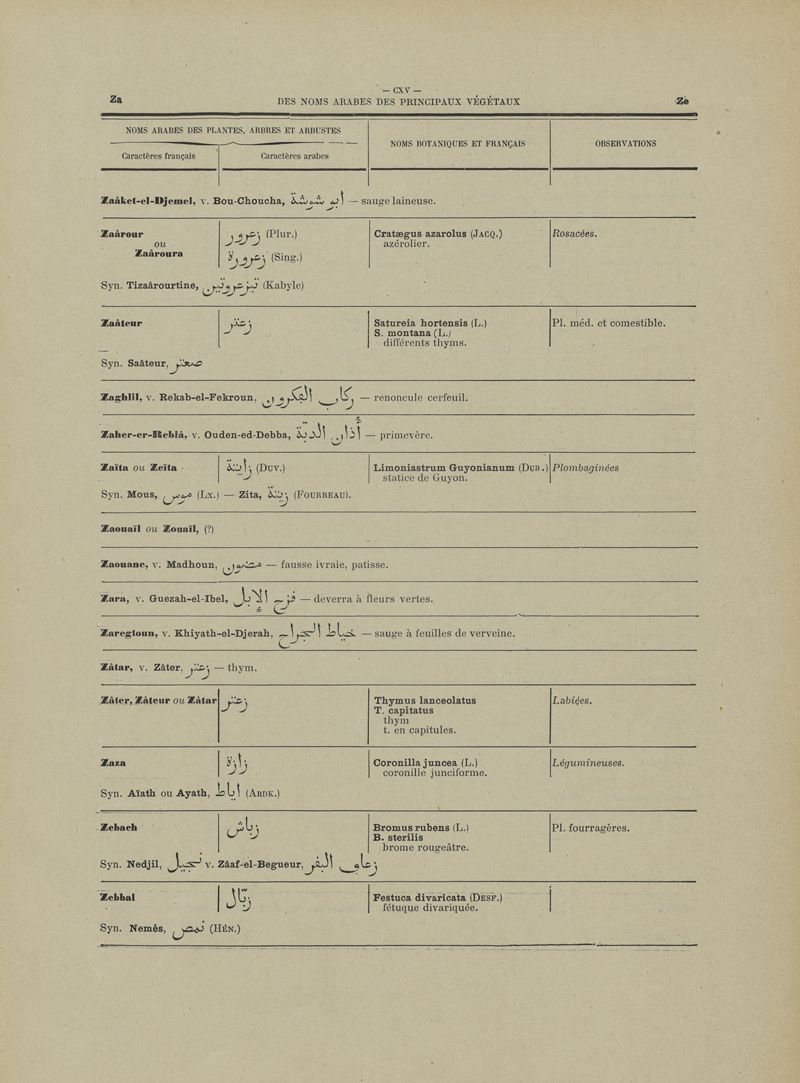 — CXV —
Za DES NOMS ARABES DES PRINCIPAUX VÉGÉTAUX Ze
NOMS ARABES DES PLANTES, ARBRES ET ARBUSTES
NOMS BOTANIQUES ET FRANÇAIS
OBSERVATIONS
Caractères français
Caractères arabes
Zaàket-el-Djemel, v. Bou-Choucha, — sauge laineuse.
Zaârour زعرور (Plur.) Cratægus azarolus (JACQ.) Rosacées.
ou azérolier.
Zaàroura زعرورة (Sing.)
Syn. Tizaârourtine, (Kabyle)
Zaàteur زعتر Satureia hortensis (L.) Pl. méd. et comestible.
S. montana (L.)
différents thyms.
Syn. Saâteur, صعتر
Zaghlil, v. Rekab-el-Fekroun, — renoncule cerfeuil.
Zaher-er-Rebià, v. Ouden-ed-Debba, — primevère.
Zaïta ou Zeïta (DUV.) Limoniastrum Guyonianum (DUB.) Plombaginées
statice de Guyon.
Syn. Mous, (LX.) — Zita, زيتة (FOURREAU).
Zaouail ou Zouaïl, (?)
Zaouane, v. Madhoun, — fausse ivraie, patisse.
Zara, v. Guezah-el-Ibel, — deverra à fleurs vertes.
Zaregtoun, v. Khiyath-el-Djerah, خياط الجراح — sauge à feuilles de verveine.
Zàtar, v. Zâter, زعتر — thym.
Zàter, Zàteur ou Zàtar زعتر Thymus lanceolatus Labiées.
T. capitatus
thym
t. en capitules.
Zaza زازة Coronilla juncea (L.) Légumineuses.
coronille junciforme.
Syn. Aïath ou Ayath, (ARDK.)
Zebach زباش Bromus rubens (L.) Pl. fourragères.
B. sterilis
brome rougeâtre.
Syn. Nedjil, نجيل v. Zâaf-el-Begueur,
Zebbal زبال Festuca divaricata (DESF.)
fétuque divariquée.
Syn. Nemès, (HÉN.)